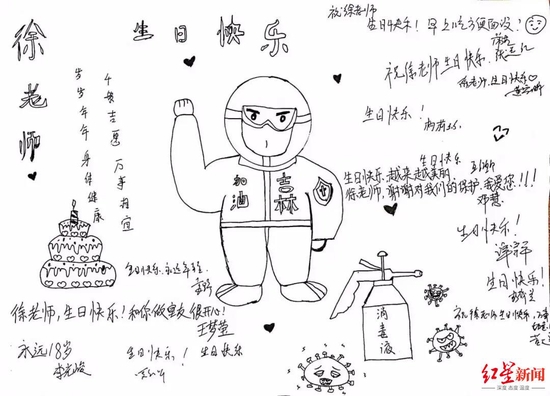 徐老师
生日快乐
岁岁年年身体健康
千般吉意万事相宜
祝徐老师
生日快乐！早上吃方便面没！
祝徐老师生日快乐
徐老师，生日快乐
生日快乐！
加油
吉林
生日快乐
生日快乐，越来越美丽
徐老师，谢谢对我们的保护，我爱您！！！
邓慧
生日快乐！
生日快乐！
生日快乐，永远年轻
徐老师，生日快乐！和你做室友很开心！
王梦萱
永远18岁
生日快乐！
生日快乐
消毒液
祝徐老师生日快乐
红星新闻
深度 态度 温度